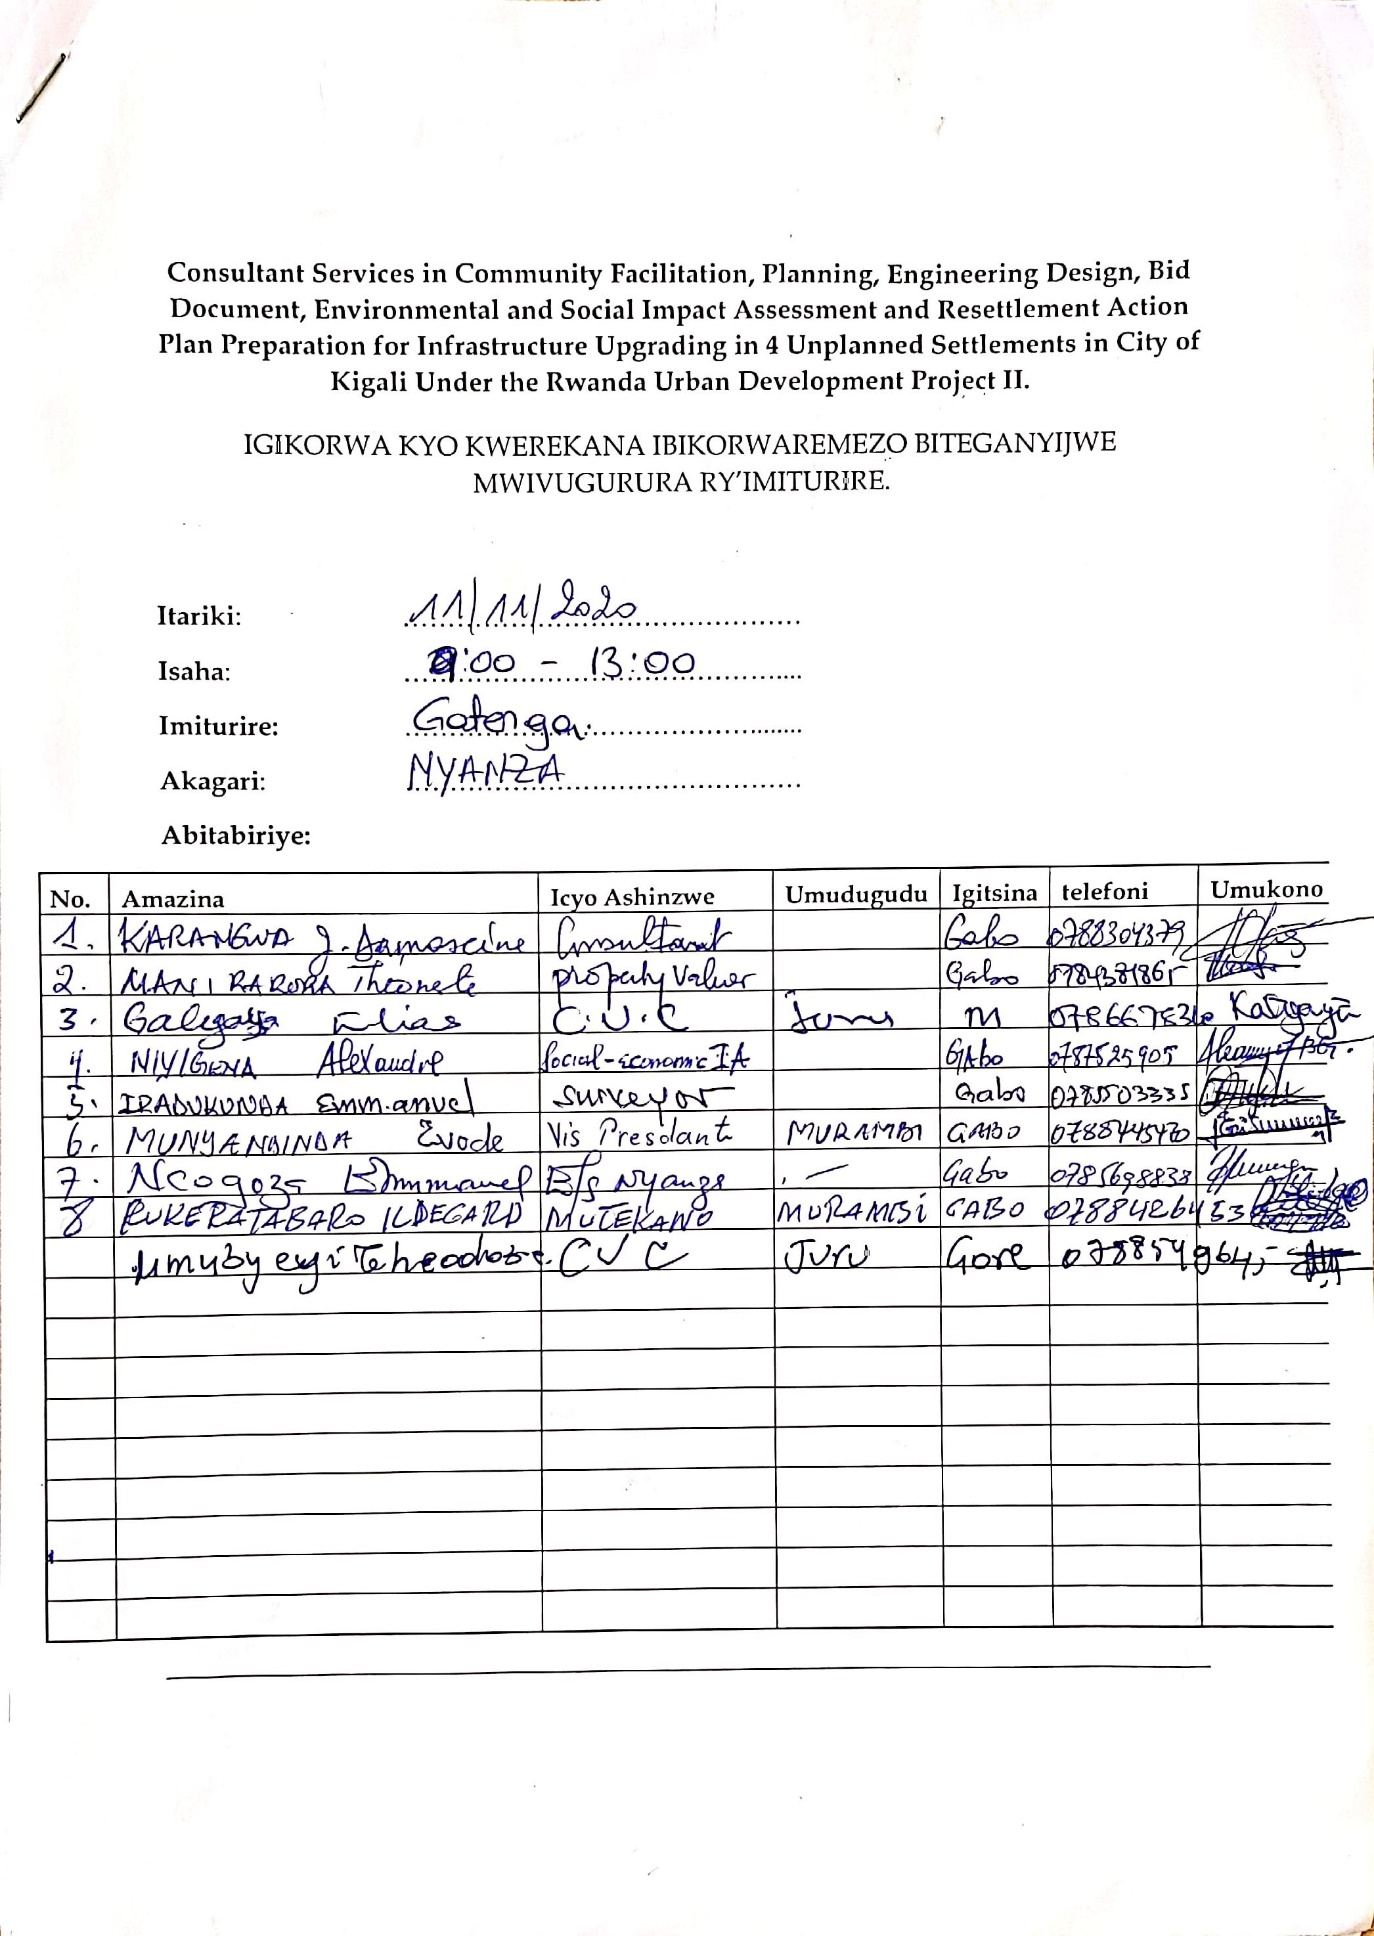 Consultant Services in Community Facilitation, Planning, Engineering Design, Bid
Document, Environmental and Social Impact Assessment and Resettlement Action
Plan Preparation for Infrastructure Upgrading in 4 Unplanned Settlements in City of
Kigali Under the Rwanda Urban Development Project II.
IGIKORWA KYO KWEREKANA IBIKORWAREMEZO BITEGANYIJWE
MWIVUGURURA RY'IMITURIRE.
Itariki: 11/11/2020
Isaha: 9:00 - 13:00
Imiturire: Gatenga
Akagari: NYANZA
Abitabiriye:
No. Amazina Icyo Ashinzwe Umudugudu Igitsina telefoni Umukono
1. KARANGWA J. Damascene Consultant Gabo 0788304379
2. property Valuer Gabo
3. Elias C.V.C M Katigaya
4. NIYIGENA Alexandre Social-Economic IA GAbo 0787525905
5. IRADUKUNDA Emmanuel Surveyor Gabo 0785503335
6. MUNYANDINDA Evode Vis Presdant MURAMBI GABO
7. Emmanuel Gabo
8 RUKERATABARO ILDEGARD MUTEKANO MURAMBI GABO 0788426453
CVC Juru Gore